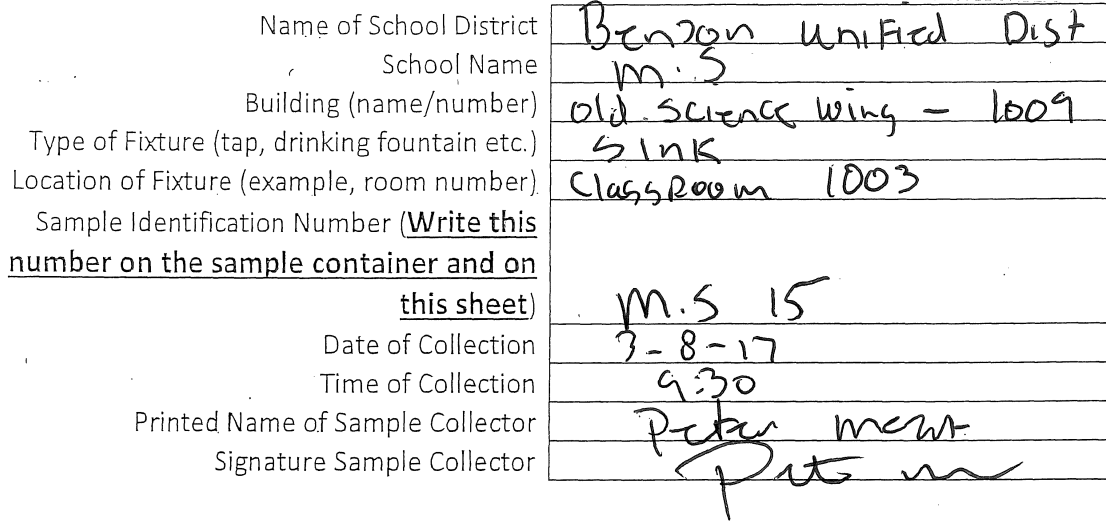 Name of School District Benson Unified Dist
School Name M.S
Building (name/number) old science wing - 1009
Type of Fixture (tap, drinking fountain etc.) Sink
Location of Fixture (example, room number) ClassRoom 1003
Sample Identification Number (Write this
number on the sample container and on
this sheet) M.S 15
Date of Collection 3-8-17
Time of Collection 9:30
Printed Name of Sample Collector Peter
Signature Sample Collector